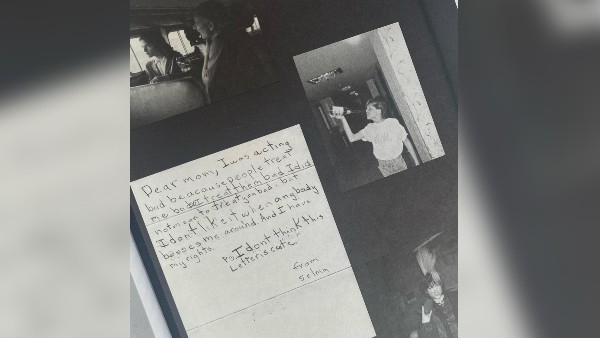 Dear mom, I was acting
bad beacause people treat
me bad treat them bad I did
not mean to treat you bad. but
I dont like it when anybody
bosses me around. And I have
my rights.
P.S. I dont think this
Letter is cute
from
Selma